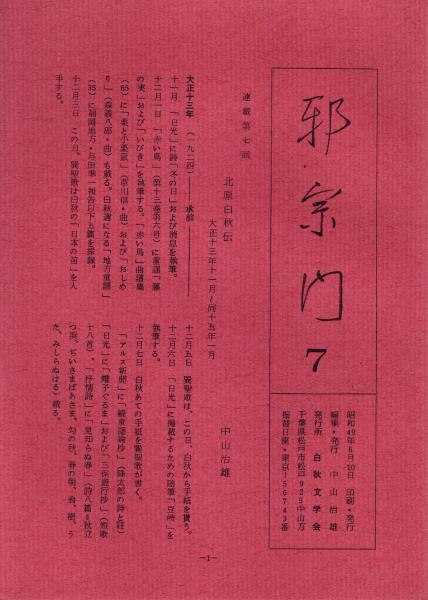 邪宗門 7
昭和49年6月10日 印刷・発行
編集・発行 中山治雄
発行所 白秋文学会
千葉県松戸市松戸925中山方
振替口座・東京156743番
連載第七回
北原白秋伝
大正十三年十一月~同十五年一月
中山治雄
大正十三年(一九二四)―― 承前 ――
十一月 「日光」に詩「冬の日」および消息を執筆。
十二月一日 「赤い鳥」(第十三巻第六号)に童謡「
の実」および「いびき」を執筆する。「赤い鳥」曲譜集
(65)に「栗と小栗鼠」(草川信・曲)および「おしめ
り」(森義八郎・曲)も載る。白秋選になる「地方童謡」
(35)に福岡地方・与田準一報告以下五篇を採録。
十二月三日 この日、巽聖歌は白秋の「日本の笛」を入
手する。
十二月五日 巽聖歌は、この日、白秋から手紙を貰う。
十二月六日 「日光」に掲載するための随筆「豆柿」を
執筆する。
十二月七日 白秋あての手紙を巽聖歌が書く。
「アルス新聞」に「観童謡鈔」(隆太郎の詩と註)
「日光」に「囃子ぐるま」および「三保遊行抄」(短歌
十八首)、「抒情詩」に「見知らぬ春」(詩八篇=秋立
つ浜、ちいさまばあさま、匂の秋、春の朝、翁、樹、う
た、みしらぬはる)載る。
―1―